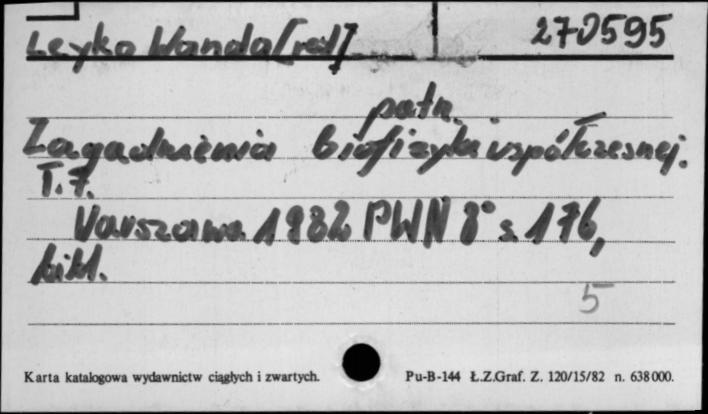 Leyko Wanda [red] 270595
patn.
Zagadnienia biofizyki współczesnej.
T.7.
Warszawa 1982 PWN 8° s. 176,
bibl.
5
Karta katalogowa wydawnictw ciągłych i zwartych. Pu-B-144 Ł.Z.Graf. Z. 120/15/82 n. 638000.